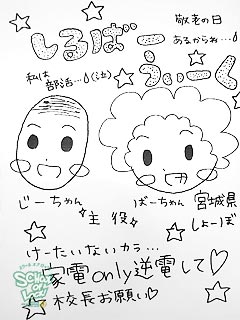 敬老の日
あるからね…
しるばーうぃーく
私は
部活…(泣)
じーちゃん
ばーちゃん
主役
宮城県
しょーぼ
けーたいないカラ…
家電only逆電して♡
校長お願い♡